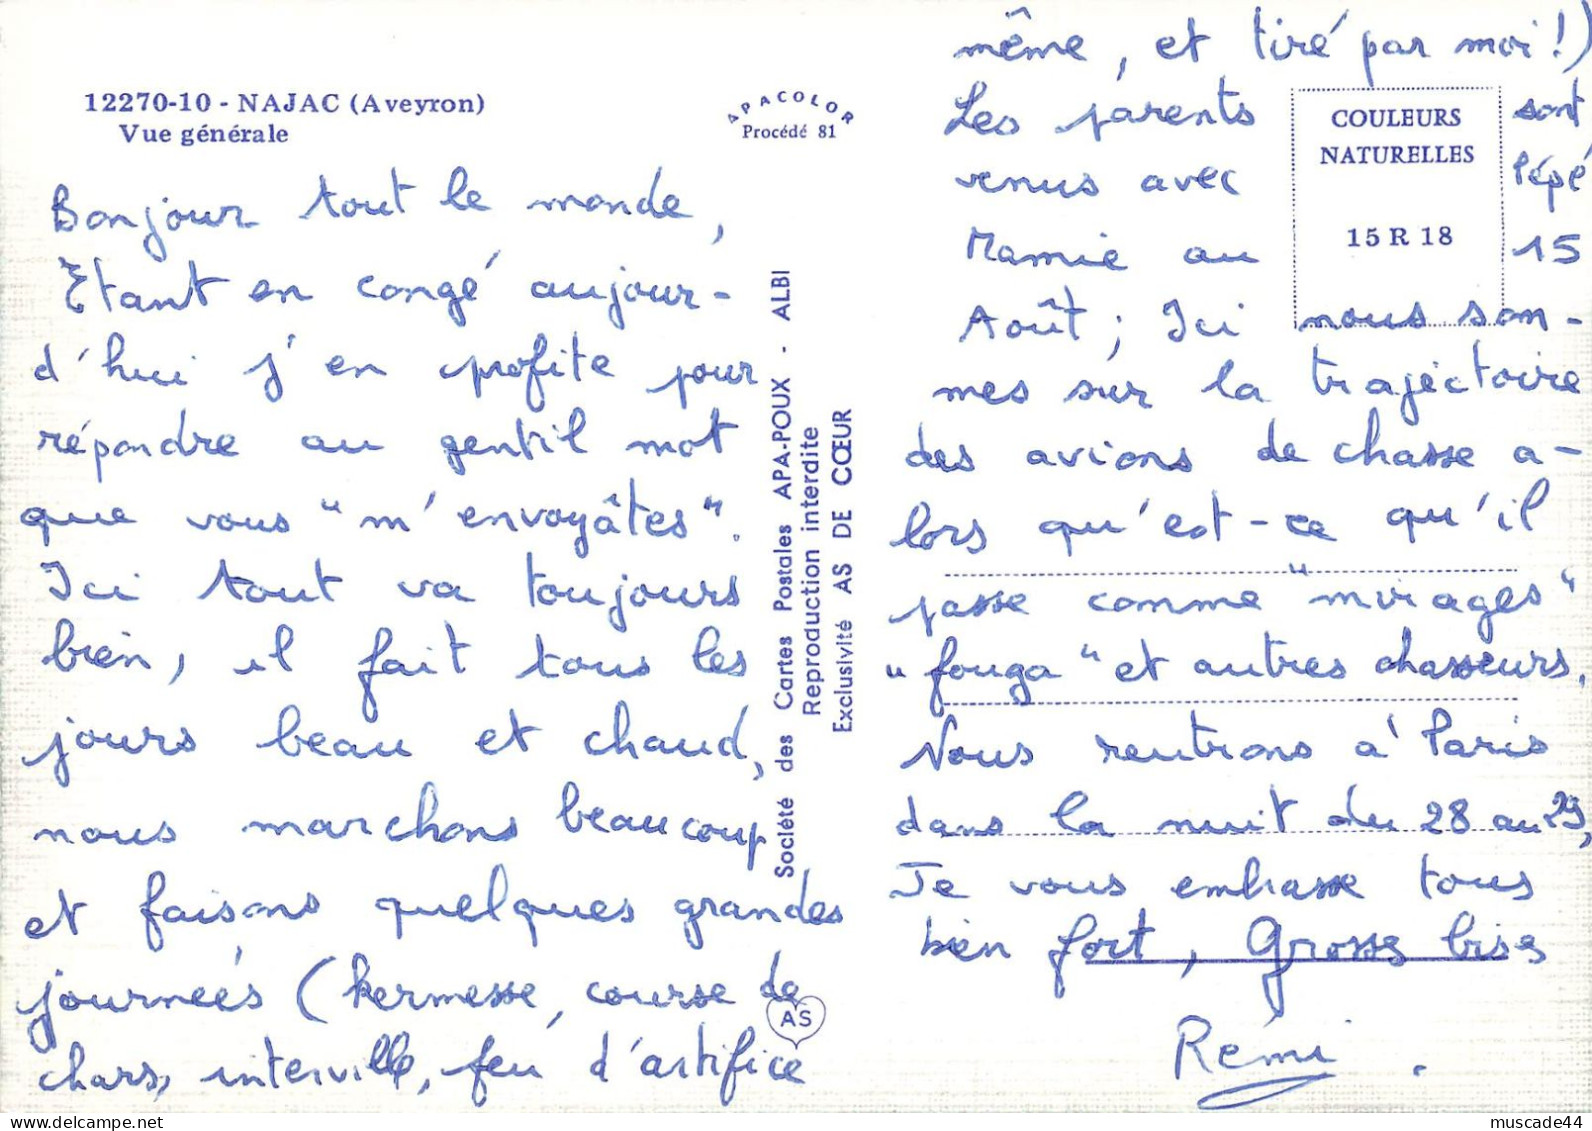 12270-10 - NAJAC (Aveyron)
Vue générale
APACOLOR
Procédé 81
Bonjour tout le monde,
Etant en congé aujour-
d'hui j'en profite pour
répondre au gentil mot
que vous "m'envoyâtes".
Ici tout va toujours
bien, il fait tous les
jours beau et chaud,
nous marchons beaucoup
et faisons quelques grandes
journeés (kermesse, course de
chars, interville, feu d'artifice
Société des Cartes Postales APA-POUX - ALBI
Reproduction interdite
Exclusivité AS DE CŒUR
AS
même, et tiré par moi!)
Les parents sont
venus avec Pépé
Mamie au 15
Août; Ici nous som-
mes sur la trajéctoire
des avions de chasse a-
lors qu'est-ce qu'il
passe comme "mirages"
"fouga" et autres chasseurs.
Nous rentrons à Paris
dans la nuit du 28 au 29,
Je vous embrasse tous
bien fort, Grosses bises
Rémi.
COULEURS
NATURELLES
15 R 18
muscade44